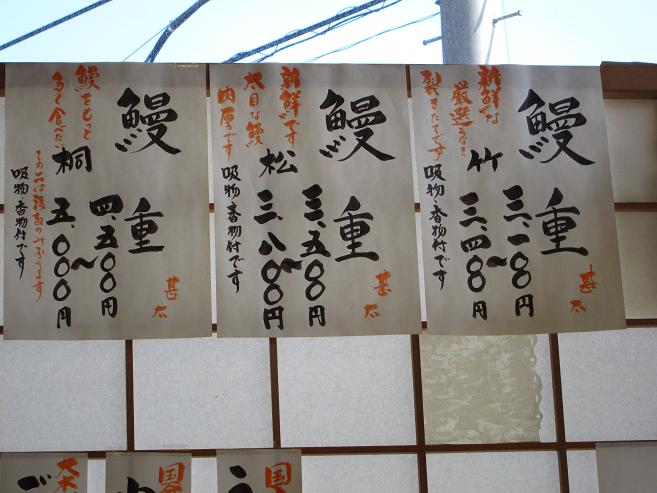 鰻重
新鮮な
厳選うなぎ
裂きたてです
竹
三、一〇〇円〜
三、四〇〇円
吸物・香物付です
甚太
鰻重
新鮮です
太目な鰻
肉厚っです
松
三、五〇〇円〜
三、八〇〇円
吸物・香物付です
甚太
鰻重
鰻をもっと
多く食べたい
桐
四、五〇〇円〜
五、〇〇〇円
吸物・香物付です
甚太
国
う
国
大
ご